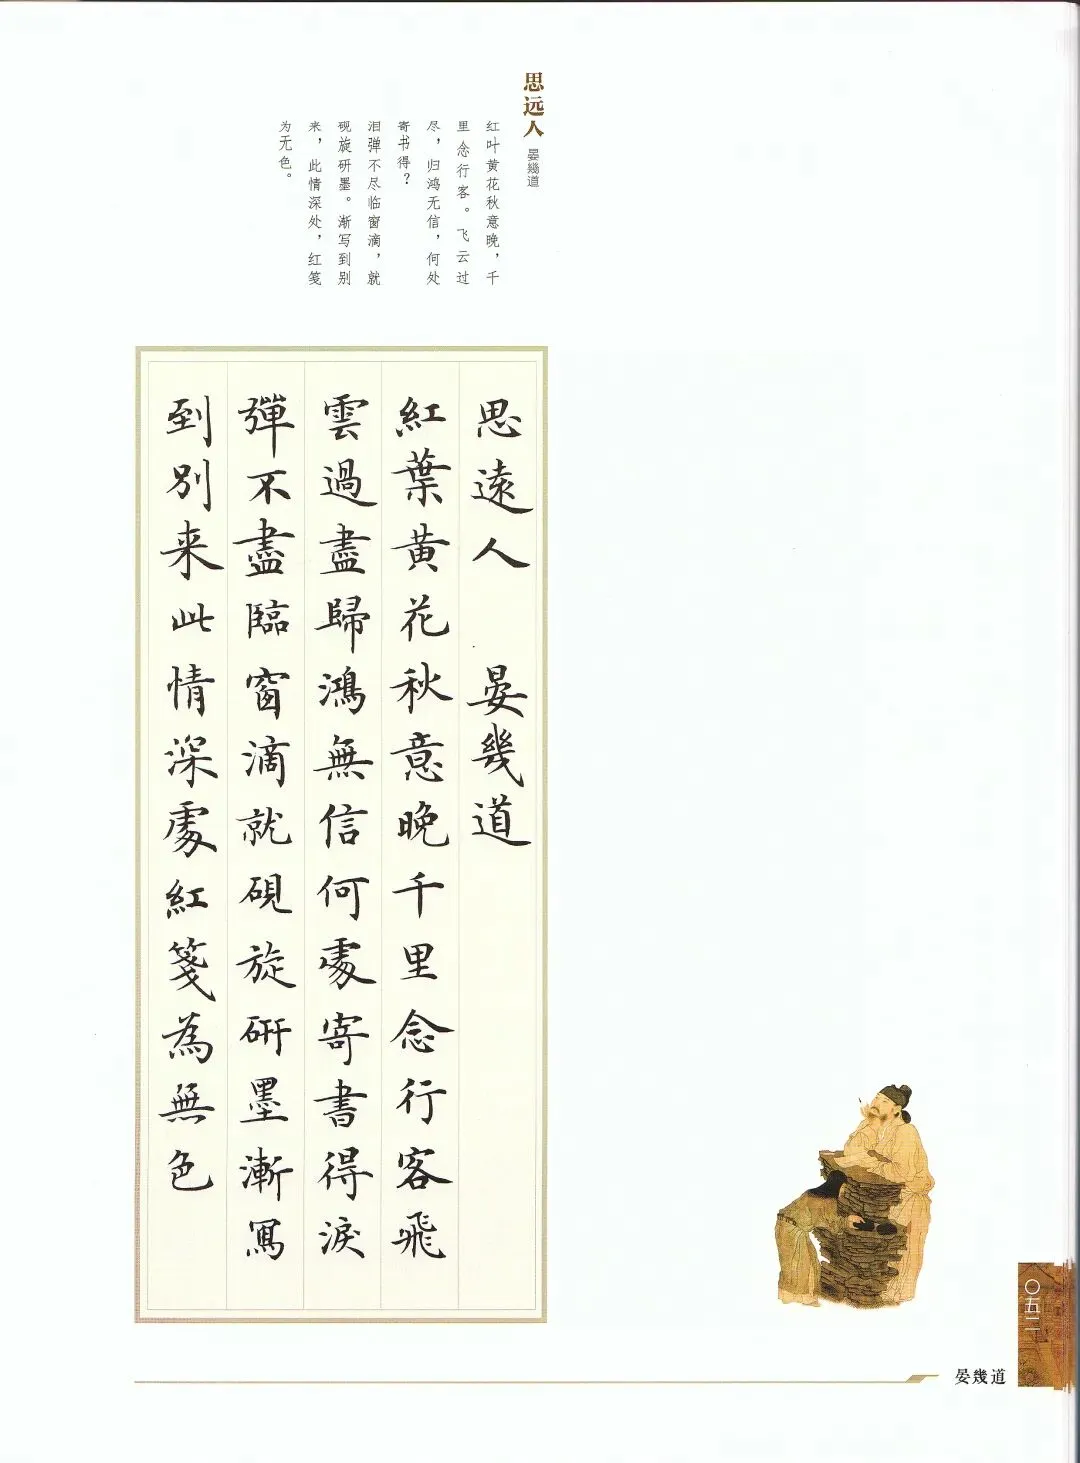 思远人
晏幾道
红叶黄花秋意晚，千
里念行客。飞云过
尽，归鸿无信，何处
寄书得？
泪弹不尽临窗滴，就
砚旋研墨。渐写到别
来，此情深处，红笺
为无色。
思遠人 晏幾道
紅葉黄花秋意晚千里念行客飛
雲過盡歸鴻無信何處寄書得淚
彈不盡臨窗滴就硯旋研墨漸寫
到别来此情深處紅箋為無色
晏幾道
〇五二